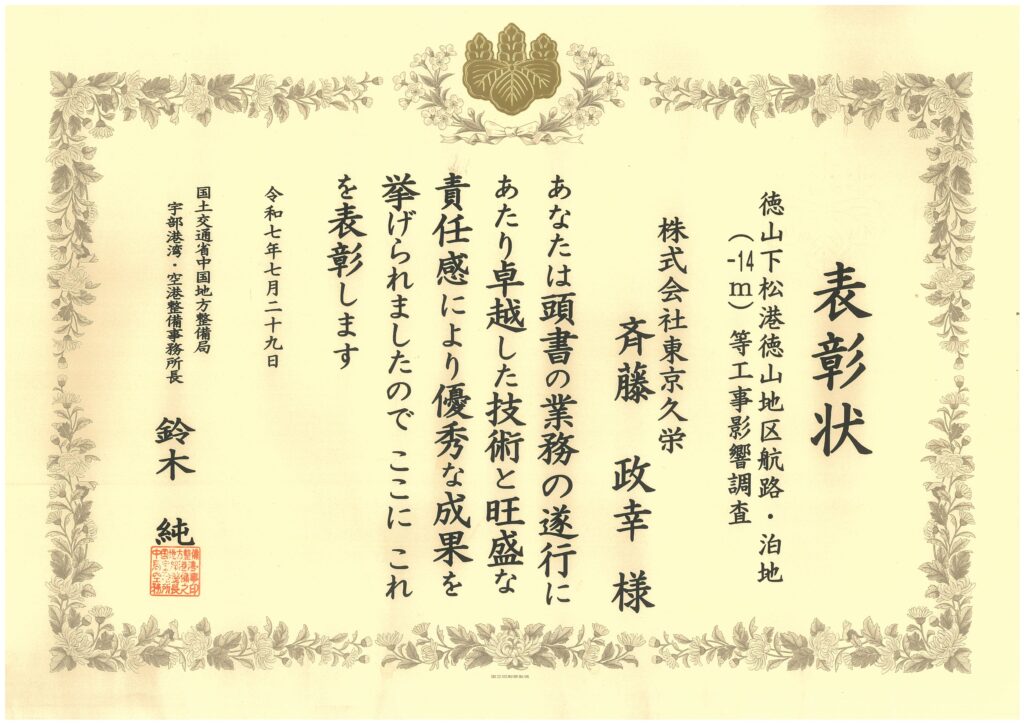 表彰状
徳山下松港徳山地区航路・泊地
（-14ｍ）等工事影響調査
株式会社東京久栄
斉藤 政幸 様
あなたは頭書の業務の遂行に
あたり卓越した技術と旺盛な
責任感により優秀な成果を
挙げられましたので ここに これ
を表彰します
令和七年七月二十九日
国土交通省中国地方整備局
宇部港湾・空港整備事務所長
鈴木 純